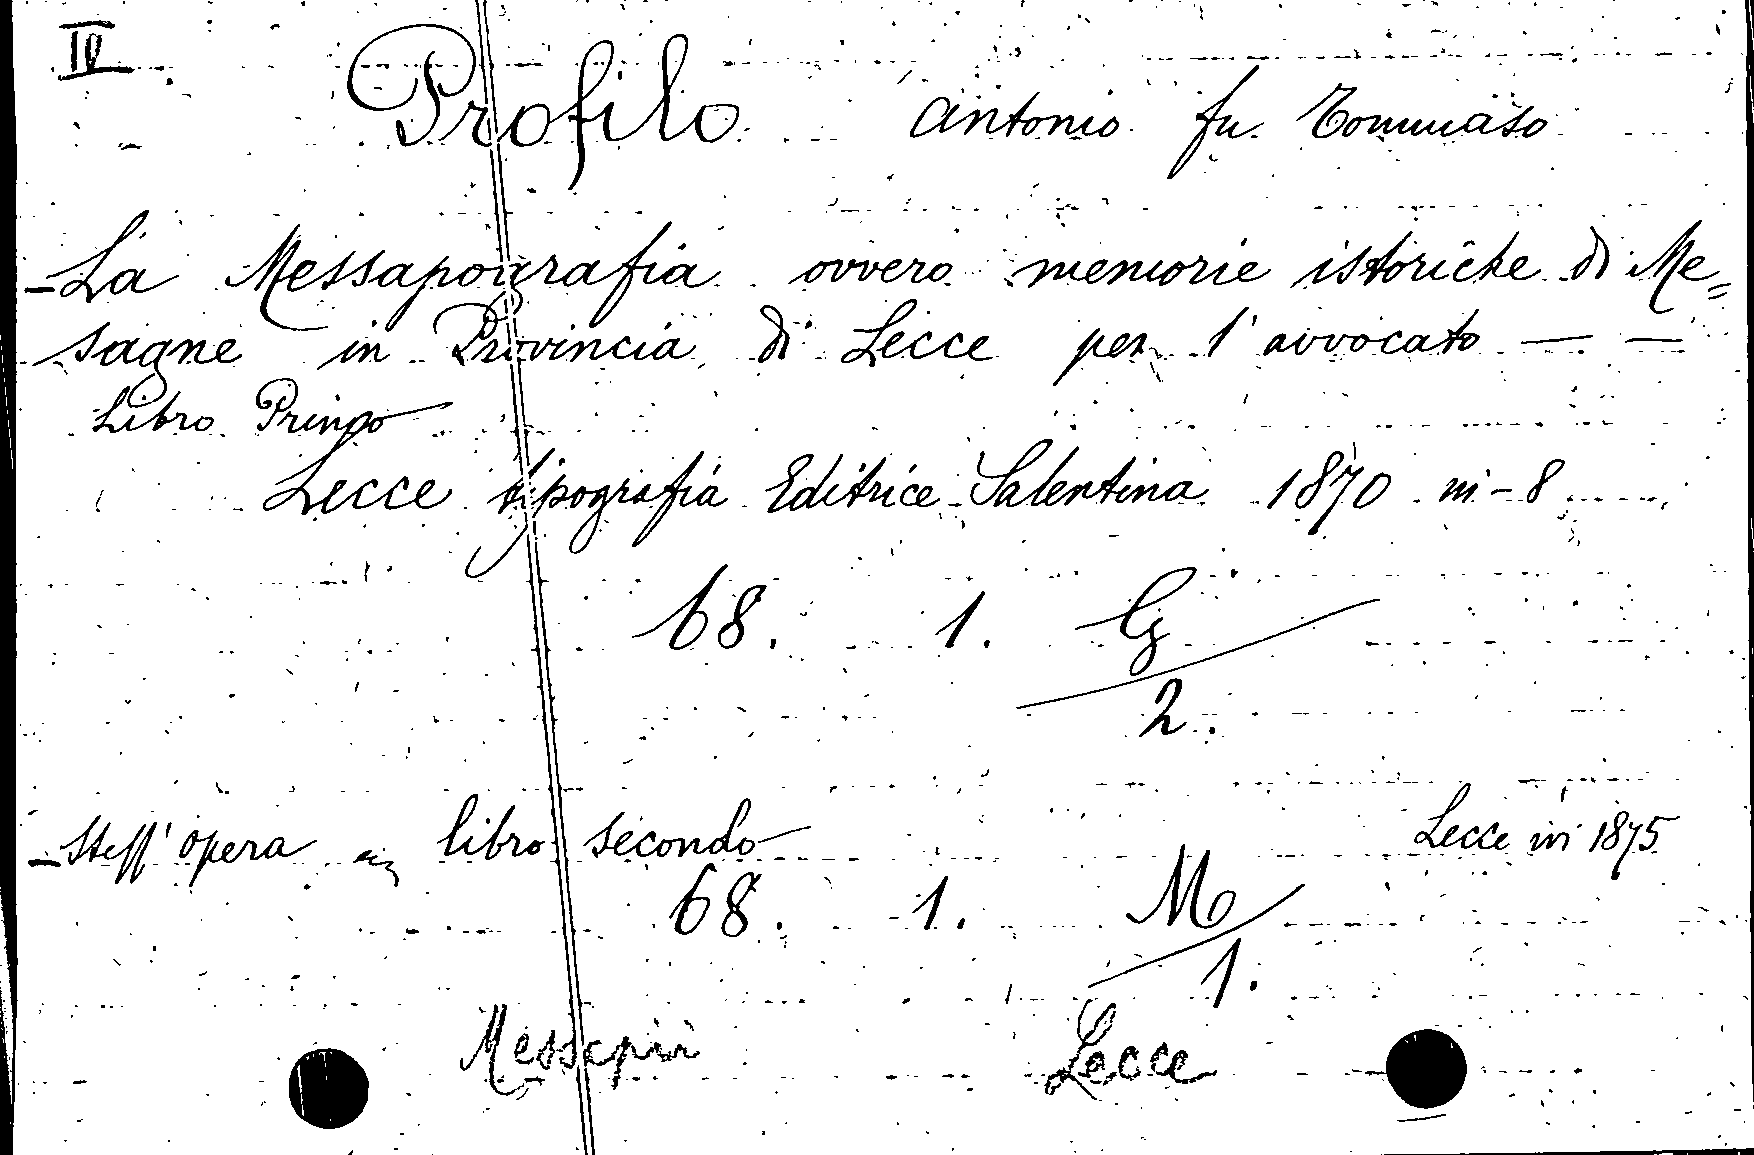 IV
Profilo Antonio fu Tommaso
- La Messapografia ovvero memorie istoriche di Me=
sagne in Provincia di Lecce per l'avvocato — —
Libro Primo
Lecce tipografia Editrice Salentina 1870 in-8
68. 1. G
2.
- Stess'opera libro secondo Lecce in 1875
68. 1. M
1.
Messapii Lecce